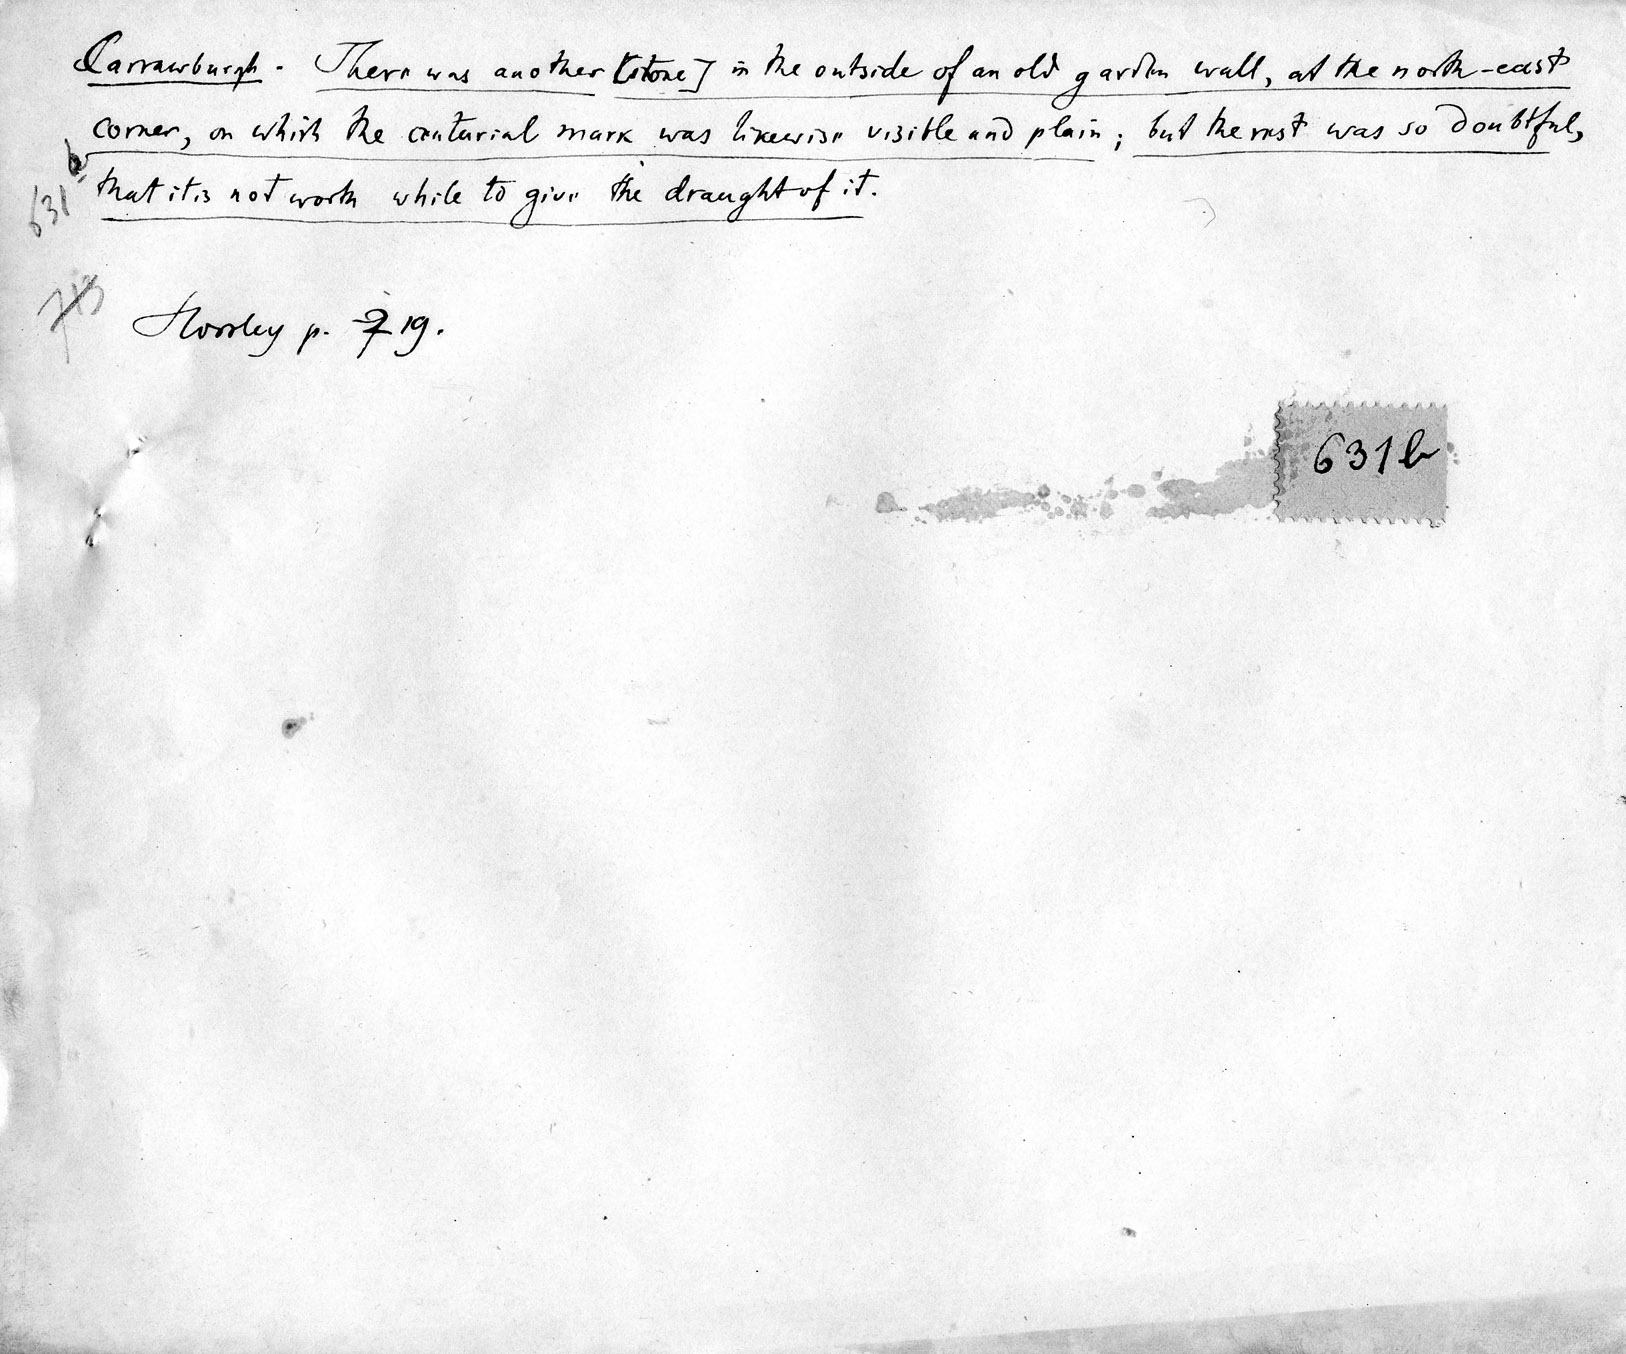 Carrawburgh. There was another [stone] in the outside of an old garden wall, at the north-east
corner, on which the centurial mark was likewise visible and plain; but the rest was so doubtful,
that it is not worth while to give the draught of it.
631 b
713
Horsley p. 219.
631 b